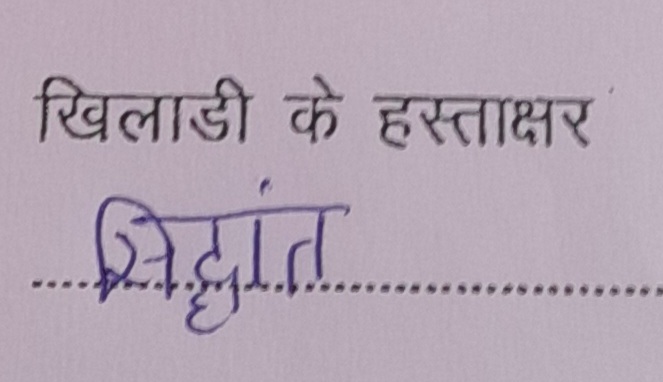 खिलाडी के हस्ताक्षर
सिद्धांत